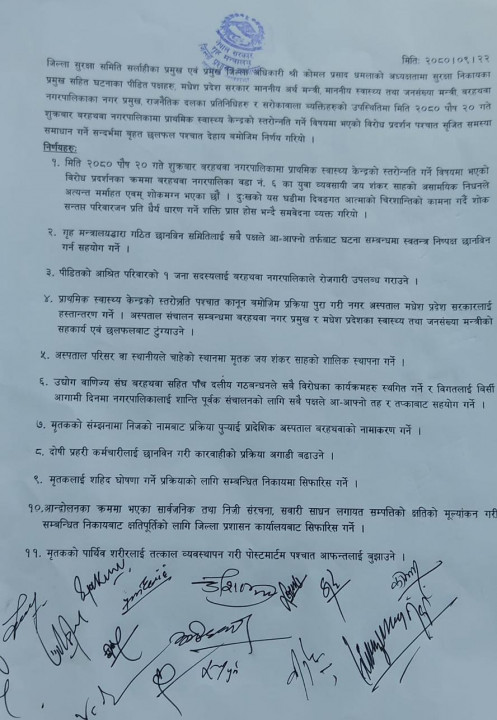 नेपाल सरकार
गृह मन्त्रालय
मिति: २०८०।०९।२२
जिल्ला सुरक्षा समिति सर्लाहीका प्रमुख एवं प्रमुख जिल्ला अधिकारी श्री कोमल प्रसाद धमलाको अध्यक्षतामा सुरक्षा निकायका
प्रमुख सहित घटनाका पीडित पक्षहरु, मधेश प्रदेश सरकार माननीय अर्थ मन्त्री, माननीय स्वास्थ्य तथा जनसंख्या मन्त्री बरहथवा
नगरपालिकाका नगर प्रमुख, राजनैतिक दलका प्रतिनिधिहरु र सरोकारवाला व्यक्तिहरुको उपस्थितिमा मिति २०८० पौष २० गते
शुक्रबार बरहथवा नगरपालिकामा प्राथमिक स्वास्थ्य केन्द्रको स्तरोन्नति गर्ने विषयमा भएको विरोध प्रदर्शन पश्चात सृजित समस्या
समाधान गर्ने सन्दर्भमा बृहत छलफल पश्चात देहाय बमोजिम निर्णय गरियो ।
निर्णयहरु:
१. मिति २०८० पौष २० गते शुक्रबार बरहथवा नगरपालिकामा प्राथमिक स्वास्थ्य केन्द्रको स्तरोन्नति गर्ने विषयमा भएको
विरोध प्रदर्शनका क्रममा बरहथवा नगरपालिका वडा नं. ६ का युवा व्यवसायी जय शंकर साहको असामयिक निधनले
अत्यन्त मर्माहत एवम् शोकमग्न भएका छौं । दुःखको यस घडीमा दिवङ्गत आत्माको चिरशान्तिको कामना गर्दै शोक
सन्तप्त परिवारजन प्रति धैर्य धारण गर्ने शक्ति प्राप्त होस भन्दै समवेदना व्यक्त गरियो ।
२. गृह मन्त्रालयद्धारा गठित छानबिन समितिलाई सबै पक्षले आ-आफ्नो तर्फबाट घटना सम्बन्धमा स्वतन्त्र निष्पक्ष छानबिन
गर्न सहयोग गर्ने ।
३. पीडितको आश्रित परिवारको १ जना सदस्यलाई बरहथवा नगरपालिकाले रोजगारी उपलब्ध गराउने ।
४. प्राथमिक स्वास्थ्य केन्द्रको स्तरोन्नति पश्चात कानून बमोजिम प्रक्रिया पुरा गरी नगर अस्पताल मधेश प्रदेश सरकारलाई
हस्तान्तरण गर्ने । अस्पताल संचालन सम्बन्धमा बरहथवा नगर प्रमुख र मधेश प्रदेशका स्वास्थ्य तथा जनसंख्या मन्त्रीको
सहकार्य एवं छलफलबाट टुंग्याउने ।
५. अस्पताल परिसर वा स्थानीयले चाहेको स्थानमा मृतक जय शंकर साहको शालिक स्थापना गर्ने ।
६. उद्योग वाणिज्य संघ बरहथवा सहित पाँच दलीय गठबन्धनले सबै विरोधका कार्यक्रमहरु स्थगित गर्ने र विगतलाई बिर्सी
आगामी दिनमा नगरपालिकालाई शान्ति पूर्वक संचालनको लागि सबै पक्षले आ-आफ्नो तह र तप्काबाट सहयोग गर्ने ।
७. मृतकको संम्झनामा निजको नामबाट प्रक्रिया पुर्‍याई प्रादेशिक अस्पताल बरहथवाको नामाकरण गर्ने ।
८. दोषी प्रहरी कर्मचारीलाई छानबिन गरी कारबाहीको प्रक्रिया अगाडी बढाउने ।
९. मृतकलाई शहिद घोषणा गर्ने प्रक्रियाको लागि सम्बन्धित निकायमा सिफारिस गर्ने ।
१०.आन्दोलनका क्रममा भएका सार्वजनिक तथा निजी संरचना, सवारी साधन लगायत सम्पत्तिको क्षतिको मूल्यांकन गरी
सम्बन्धित निकायबाट क्षतिपूर्तिको लागि जिल्ला प्रशासन कार्यालयबाट सिफारिस गर्ने ।
११. मृतकको पार्थिव शरीरलाई तत्काल व्यवस्थापन गरी पोस्टमार्टम पश्चात आफन्तलाई बुझाउने ।